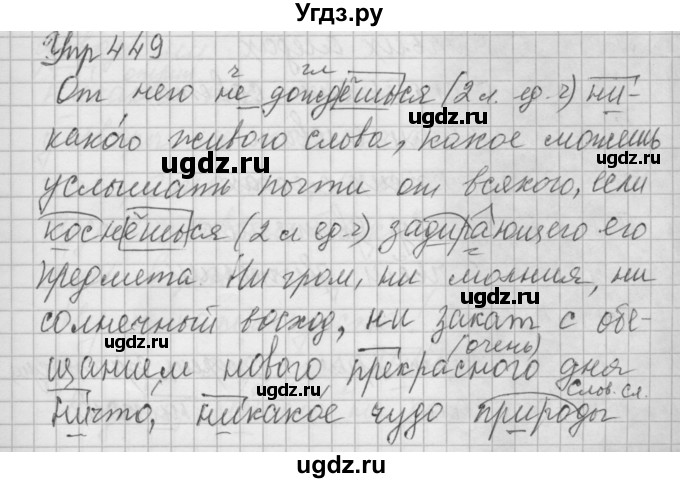 Угдз.ру
Упр 449
ч гл
От него не дождёшься (2 л. ед. ч) ни-
какого живого слова, какое можешь
услышать почти от всякого, если
коснёшься (2 л ед. ч) задирающего его
предмета. Ни гром, ни молния, ни
солнечный восход, ни закат с обе-
(очень)
щанием нового прекрасного дня
слов. сл.
ничто, никакое чудо природы
ugdz.ru
ugdz.ru
ugdz.ru
ugdz.ru
ugdz.ru
ugdz.ru
ugdz.ru
ugdz.ru
ugdz.ru